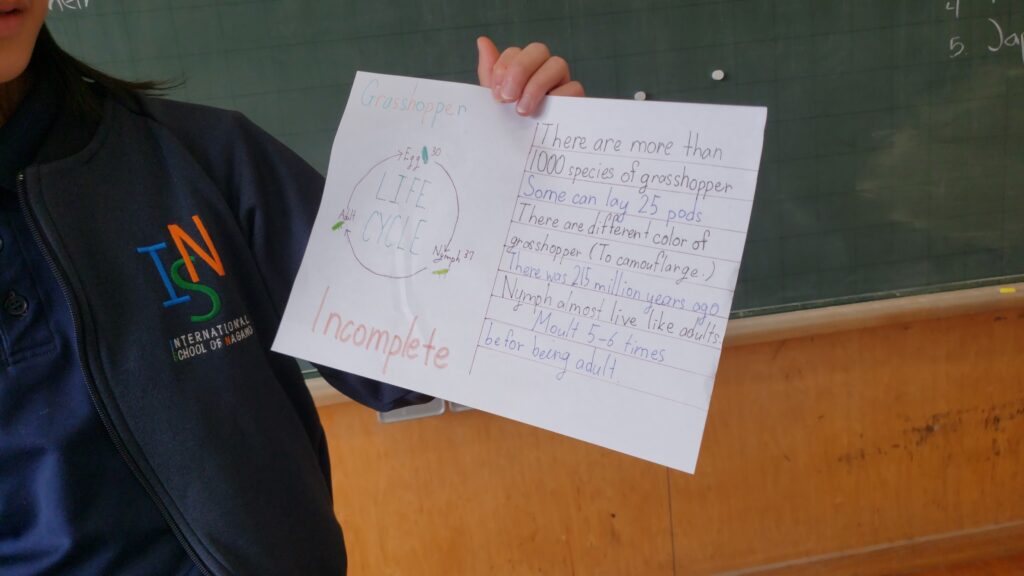 Grasshopper
Egg 30
LIFE
CYCLE
Adult
Nymph 37
Incomplete
There are more than
1000 species of grasshopper
Some can lay 25 pods
There are different color of
grasshopper (To camouflarge.)
There was 215 million years ago
Nymph almost live like adults
Moult 5-6 times
befor being adult.
ISN
INTERNATIONAL
SCHOOL OF NAGANO
4
5. Jap